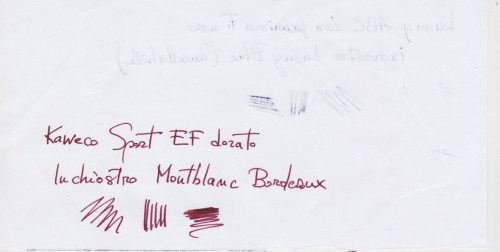 Lamy ABC con pennino F nero
inchiostro Lamy Blue (cancellabile)
Kaweco Sport EF dorato
Inchiostro Montblanc Bordeaux